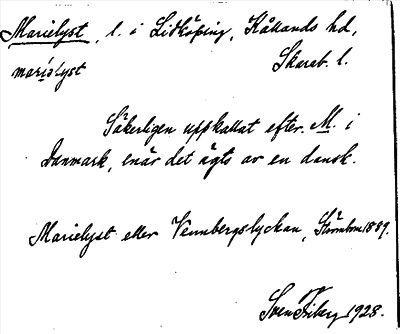 Marielyst, l. i Lidköping, Kållands hd,
marielyst Skarab. l.
Säkerligen uppkallat efter M. i
Danmark, enär det ägts av en dansk.
Marielyst eller Vennbergslyckan, Strömbom 1889.
Sven Friberg 1928.